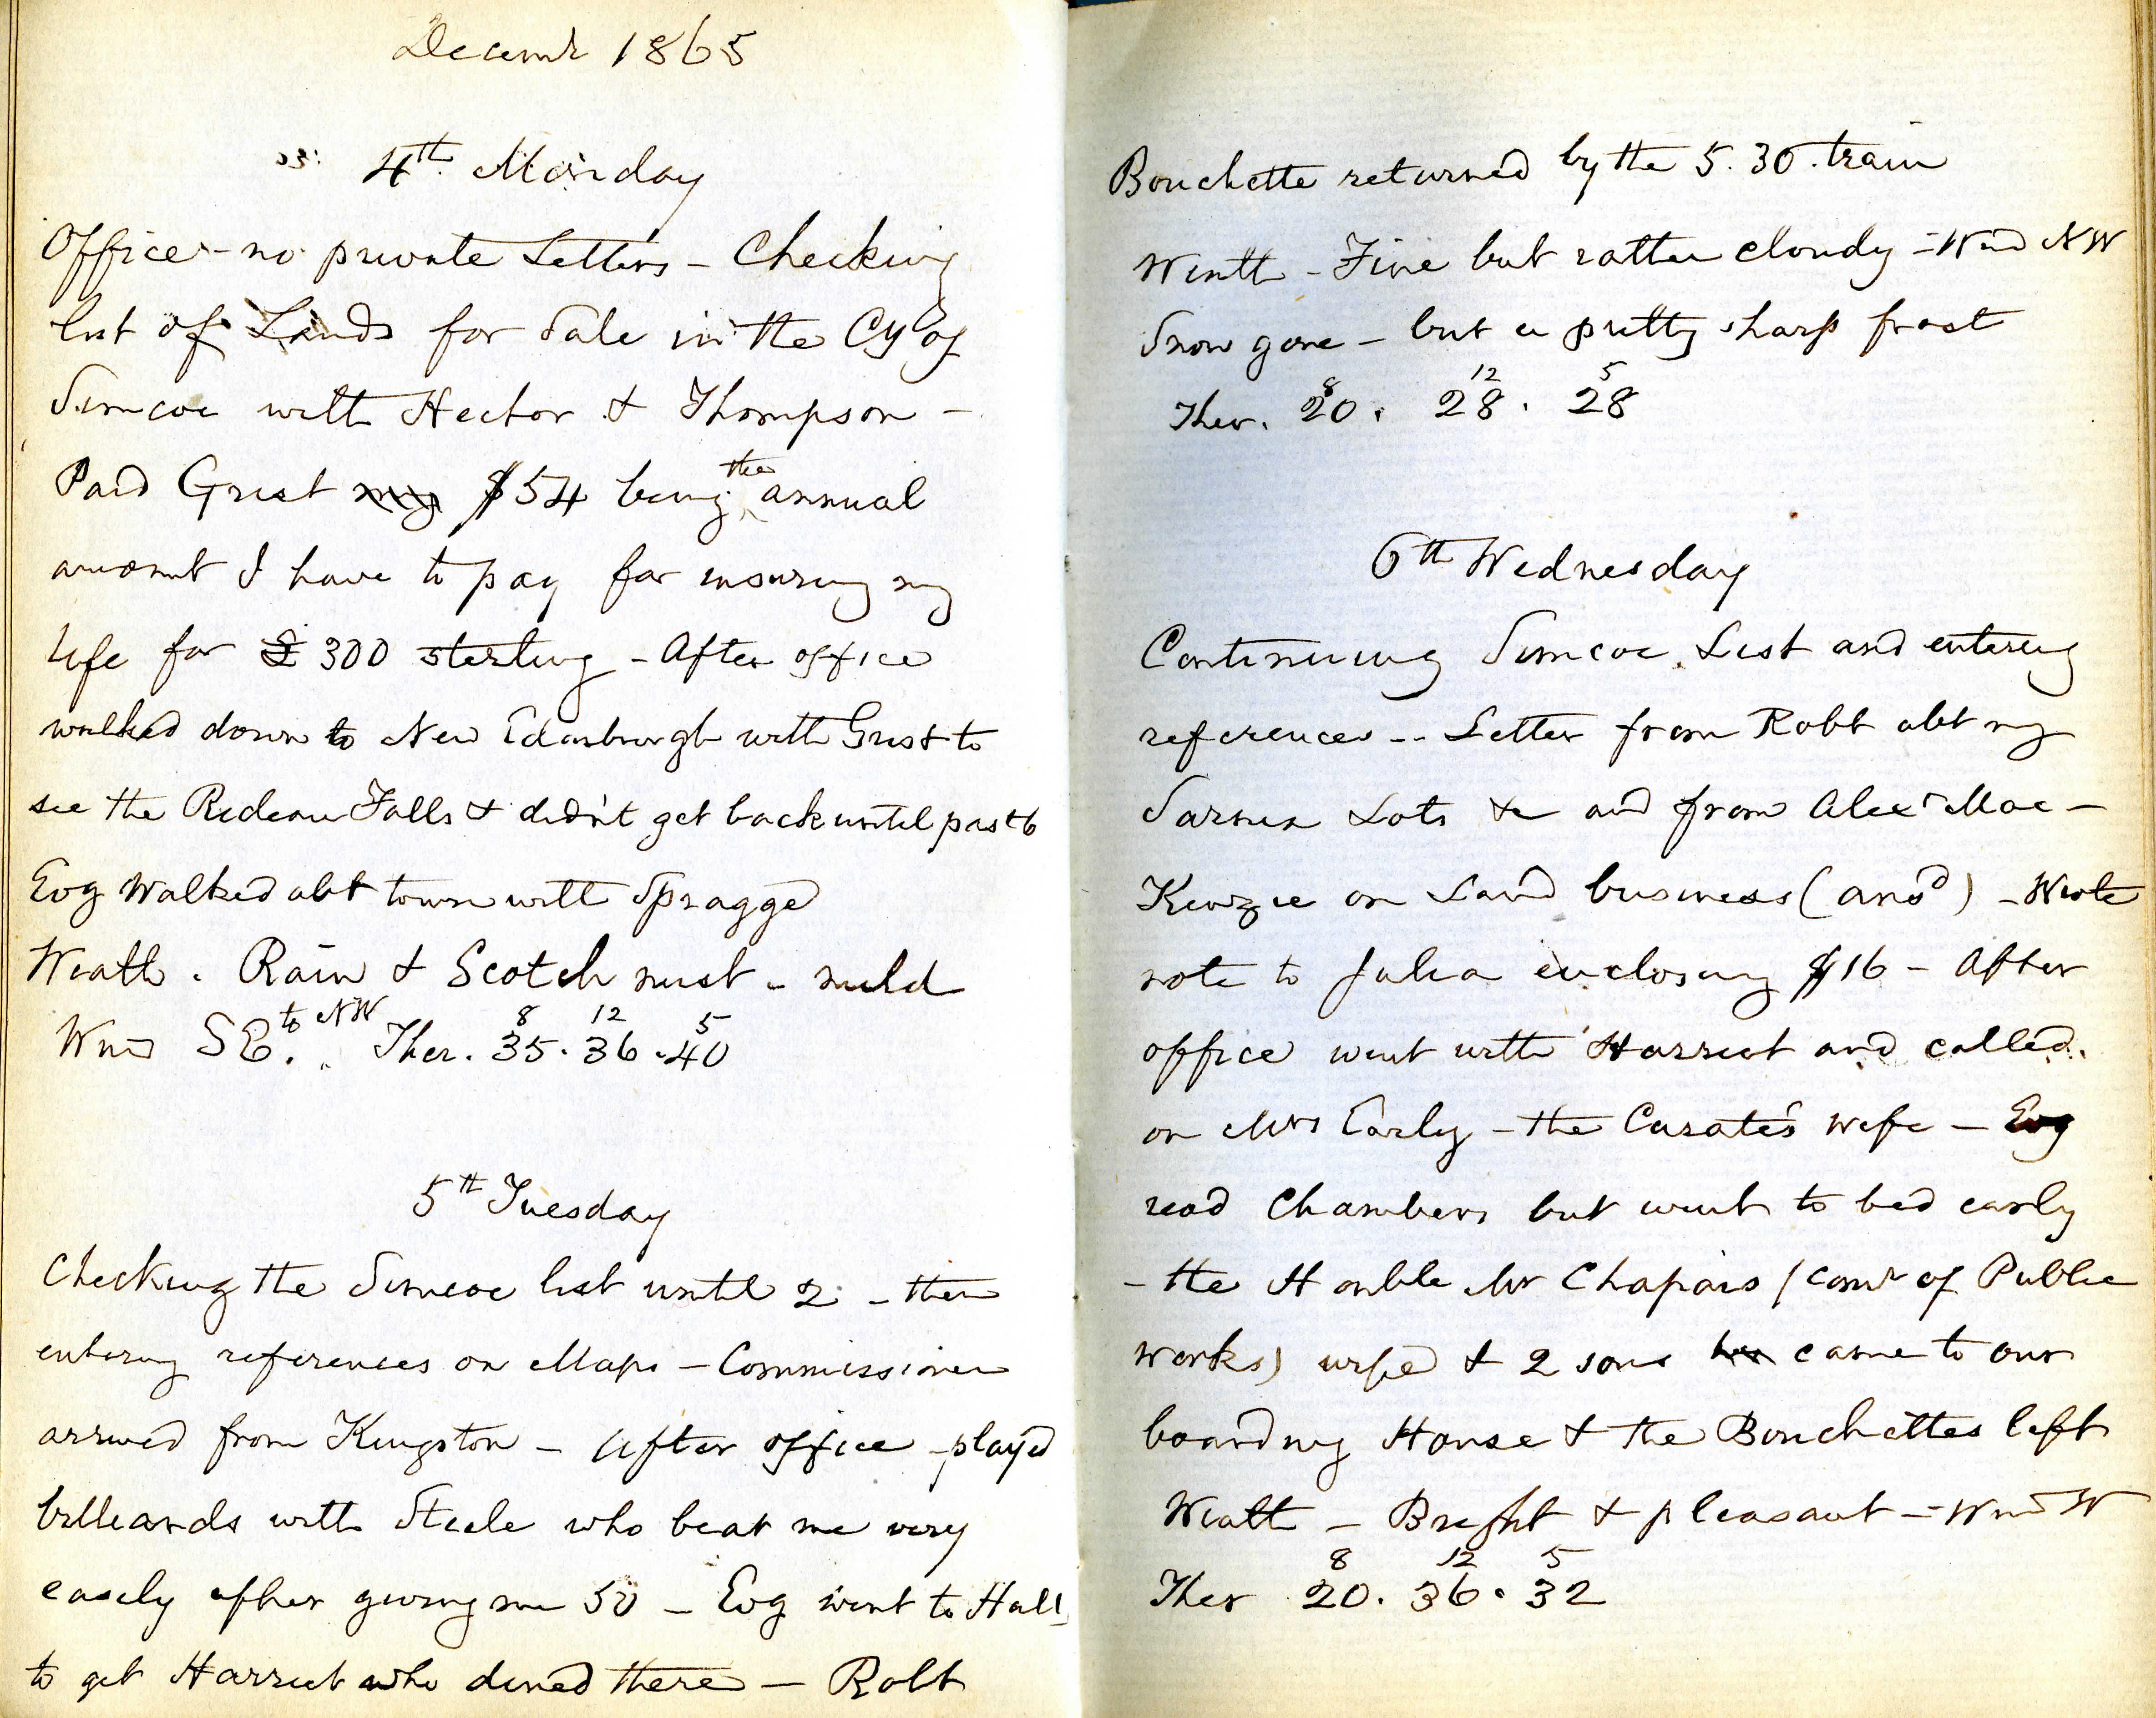 Decemr 1865
4th Monday
Office - no private Letters - Checking
list of Lands for Sale in the Cy of
Simcoe with Hector & Thompson -
Paid Grist my $54 being the annual
amount I have to pay for insuring my
life for £300 sterling - After office
walked down to New Edinburgh with Grist to
see the Rideau Falls & didn't get back until past 6
Evg Walked abt town with Spragge
Weath. Rain & Scotch mist - mild
Wind SE. to NW Ther. 8 35. 12 36. 5 40
5th Tuesday
Checking the Simcoe list until 2 - then
entering references on Maps - Commissioner
arrived from Kingston - After office played
billiards with Steele who beat me very
easily after giving me 50 - Evg went to Halls
to get Harriet who dined there - Robt
Bouchette returned by the 5.30 train
Weath - Fine but rather cloudy - Wind NW
Snow gone - but a pretty sharp frost
Ther. 8 20. 12 28. 5 28
6th Wednesday
Continuing Simcoe List and entering
references -- Letter from Robt abt my
Sarnia Lots &c and from Alexr Mac-
Kenzie on Land business (ansd) - Wrote
note to Julia enclosing $16 - After
office went with Harriet and called
on Mrs Early - the Curate's wife - Evg
read Chambers but went to bed early
- the Honble Mr Chapais (Comr of Public
Works) wife & 2 sons came to our
boarding House & the Bouchettes left
Weath - Bright & pleasant - Wind W
Ther 8 20. 12 36. 5 32